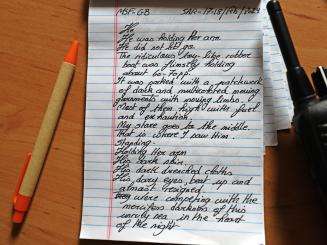 MSF-GB SAR-17.18/Feb/2021
He
He was holding her arm.
He did not let go.
The ridiculous toy-like rubber
boat was firmly holding
about 60-70pp.
It was packed with a patchwork
of dark and multicolored moving
garments with moving limbs.
Most of them high with fuel
and exhaustion.
My stare goes to the middle.
That is where I saw him.
Standing.
Holding her arm
His dark skin.
His dark drenched cloths
His eyes, beat up and
almost resigned.
They were competing with the
merciless darkness of this
unruly sea in the heart
of the night